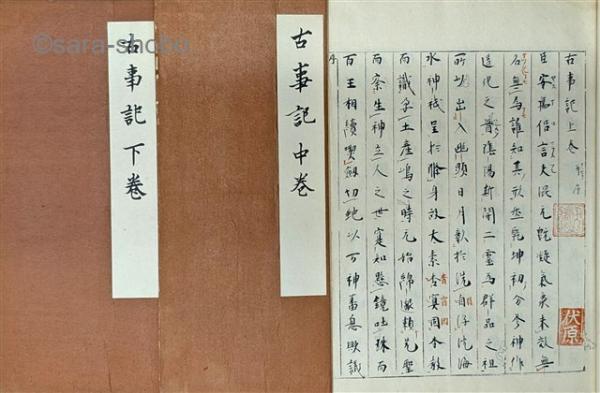 ©sara-shobo
古事記上巻 幷序
臣安萬侶言夫混元既凝氣象未效無
名無為誰知其形然乾坤初分参神作
造化之首陰陽斯開二霊為群品之祖
所以出入幽顕日月彰於洗目浮沈海
水神祇呈於滌身故太素杳冥因本教
而識孕土産嶋之時元始綿邈頼先聖
而察生神立人之世寔知懸鏡吐珠而
百王相續喫劔切蛇以万神蕃息與議
伏原
古事記 中巻
古事記 下巻